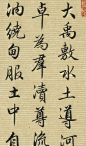 大禹敷水土導河
卓為羣瀆尊流
油繞甸服土中自